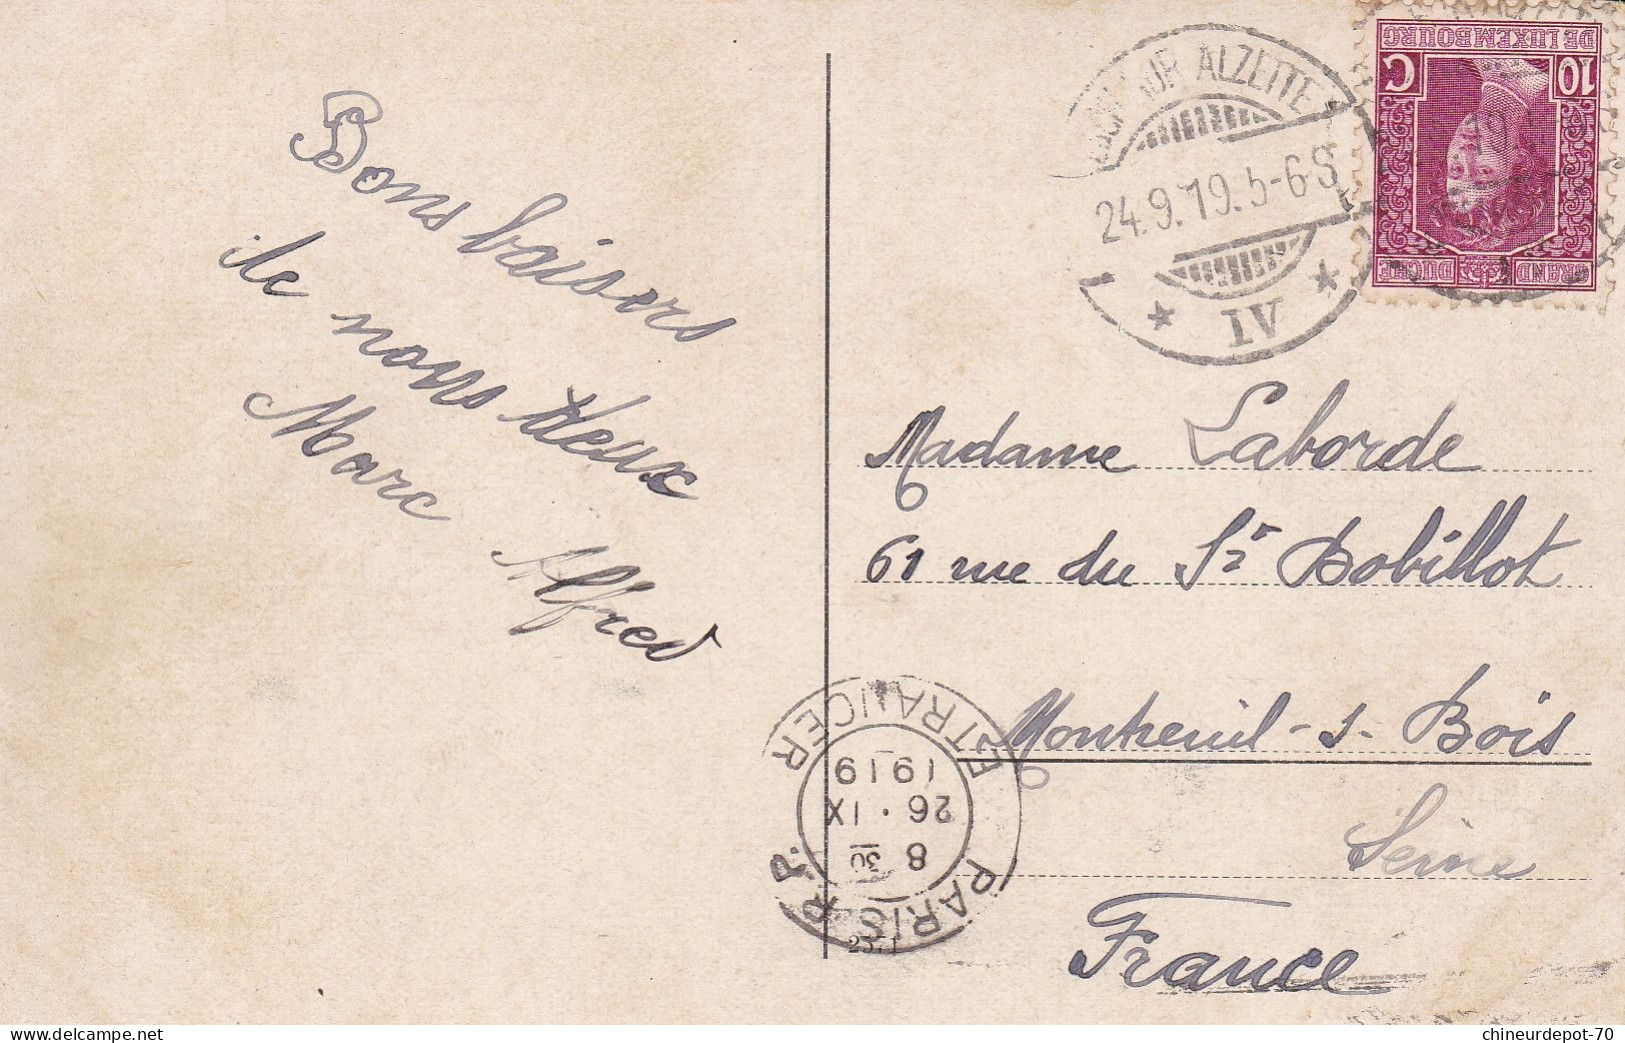 Bons baisers
de nous deux
Marc Alfred
ESCH SUR ALZETTE
24.9.19.5-6S
GRAND DUCHÉ
10 C
DE LUXEMBOURG
Madame Laborde
61 rue du Sr Bobillot
Montreuil-s-Bois
Seine
France
PARIS R.P.
8 30
26 · IX
1919
ETRANGER
2571
chineurdepot-70